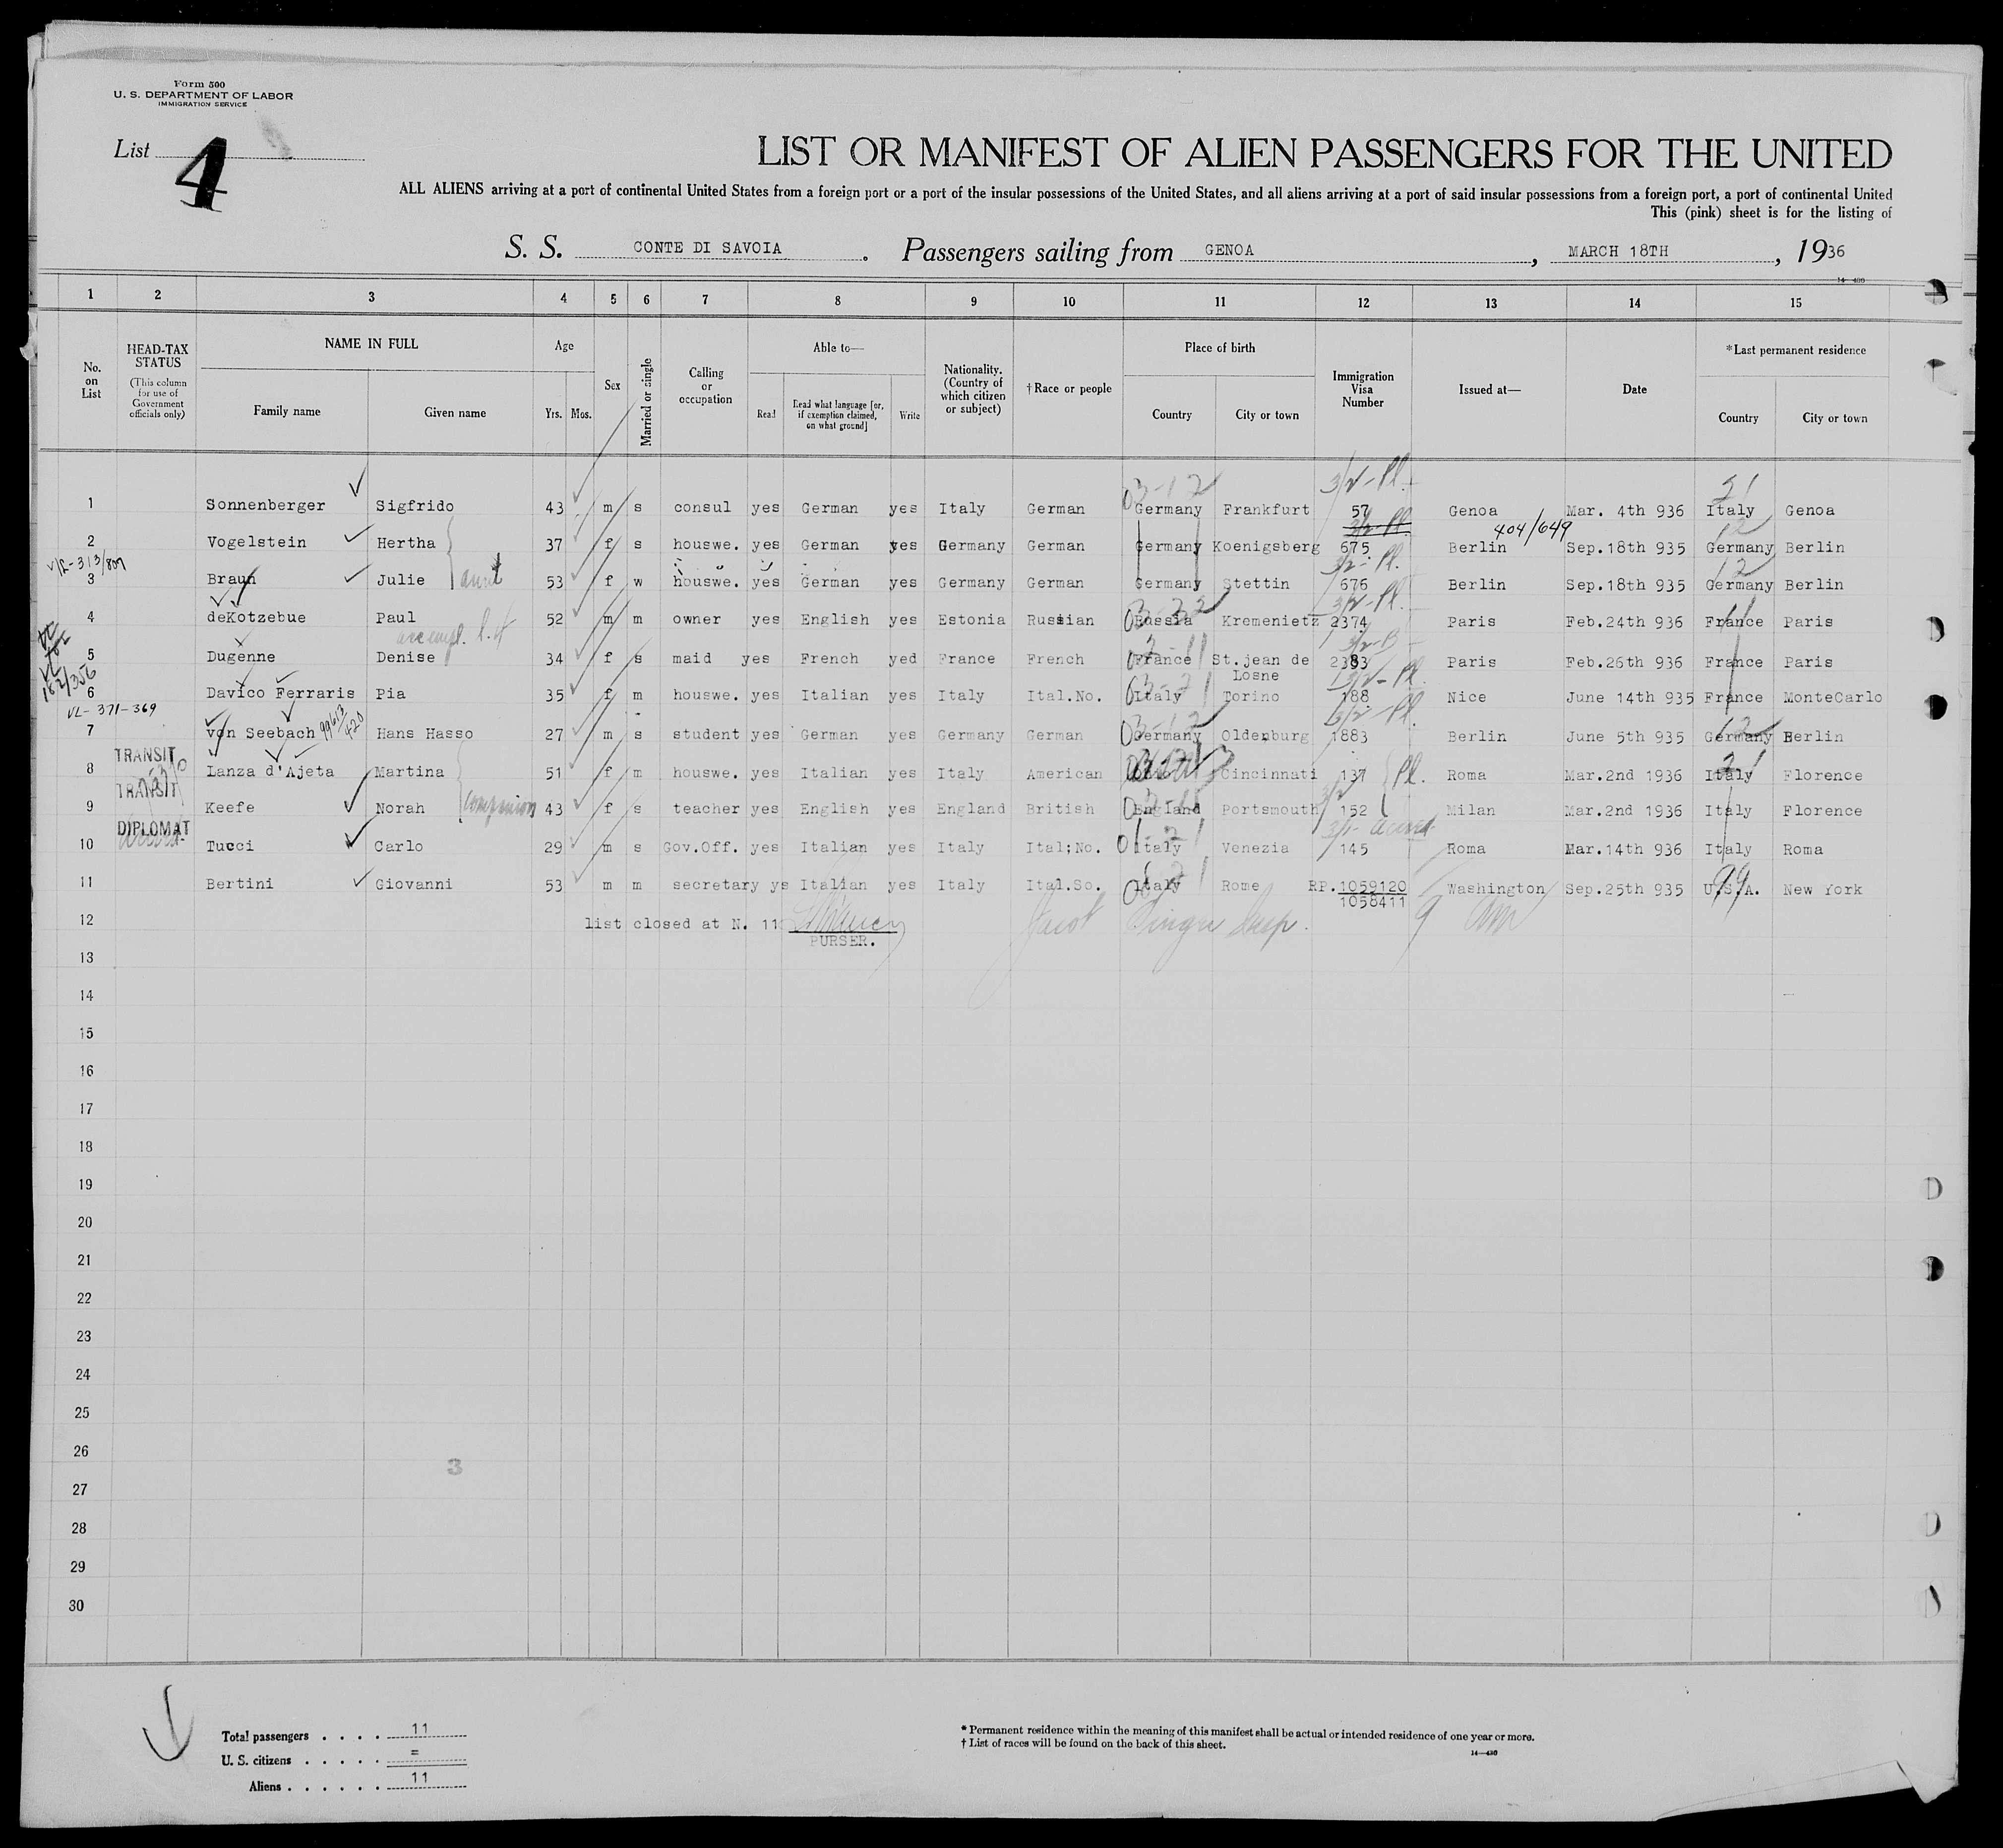 Form 500
U. S. DEPARTMENT OF LABOR
IMMIGRATION SERVICE
List 4
LIST OR MANIFEST OF ALIEN PASSENGERS FOR THE UNITED
ALL ALIENS arriving at a port of continental United States from a foreign port or a port of the insular possessions of the United States, and all aliens arriving at a port of said insular possessions from a foreign port, a port of continental United
This (pink) sheet is for the listing of
S. S. CONTE DI SAVOIA. Passengers sailing from GENOA, MARCH 18TH, 1936
14—430
1 2 3 4 5 6 7 8 9 10 11 12 13 14 15
No. on List
HEAD-TAX STATUS
(This column for use of Government officials only)
NAME IN FULL
Family name Given name
Age
Yrs. Mos.
Sex
Married or single
Calling or occupation
Able to—
Read
Read what language [or, if exemption claimed, on what ground]
Write
Nationality. (Country of which citizen or subject)
†Race or people
Place of birth
Country City or town
Immigration Visa Number
Issued at—
Date
*Last permanent residence
Country City or town
3/2-Pl.
3-12 21
1 Sonnenberger Sigfrido 43 m s consul yes German yes Italy German Germany Frankfurt 57 Genoa Mar. 4th 936 Italy Genoa
3/2-Pl. 404/649 12
2 Vogelstein Hertha 37 f s houswe. yes German yes Germany German Germany Koenigsberg 675 Berlin Sep.18th 935 Germany Berlin
V/L-313/807 3/2-Pl. 12
3 Braun Julie aunt 53 f w houswe. yes German yes Germany German Germany Stettin 676 Berlin Sep.18th 935 Germany Berlin
3-22 3/2-Pl. 11
4 deKotzebue Paul 52 m m owner yes English yes Estonia Russian Russia Kremenietz 2374 Paris Feb.24th 936 France Paris
5 Dugenne Denise 34 f s maid yes French yed France French France St.jean de 2383 Paris Feb.26th 936 France Paris
Losne
182/356 3-21 3/2-Pl.
6 Davico Ferraris Pia 35 f m houswe. yes Italian yes Italy Ital.No. Italy Torino 188 Nice June 14th 935 France MonteCarlo
VL-371-369 3-12 3/2-Pl. 12
7 von Seebach 99613/420 Hans Hasso 27 m s student yes German yes Germany German Germany Oldenburg 1883 Berlin June 5th 935 Germany Berlin
TRANSIT 21
8 Lanza d'Ajeta Martina 51 f m houswe. yes Italian yes Italy American Cincinnati 137 Pl. Roma Mar.2nd 1936 Italy Florence
TRANSIT
9 Keefe Norah companion 43 f s teacher yes English yes England British England Portsmouth 152 Milan Mar.2nd 1936 Italy Florence
DIPLOMAT
10 Tucci Carlo 29 m s Gov.Off. yes Italian yes Italy Ital;No. Italy Venezia 145 Roma Mar.14th 936 Italy Roma
11 Bertini Giovanni 53 m m secretary ys Italian yes Italy Ital.So. Italy Rome RP.1059120 Washington Sep.25th 935 U.S.A. New York
1058411
12 list closed at N. 11
PURSER.
13
14
15
16
17
18
19
20
21
22
23
24
25
26
3
27
28
29
30
Total passengers . . . . 11
U. S. citizens . . . . . =
Aliens . . . . . . 11
* Permanent residence within the meaning of this manifest shall be actual or intended residence of one year or more.
† List of races will be found on the back of this sheet.
14—430